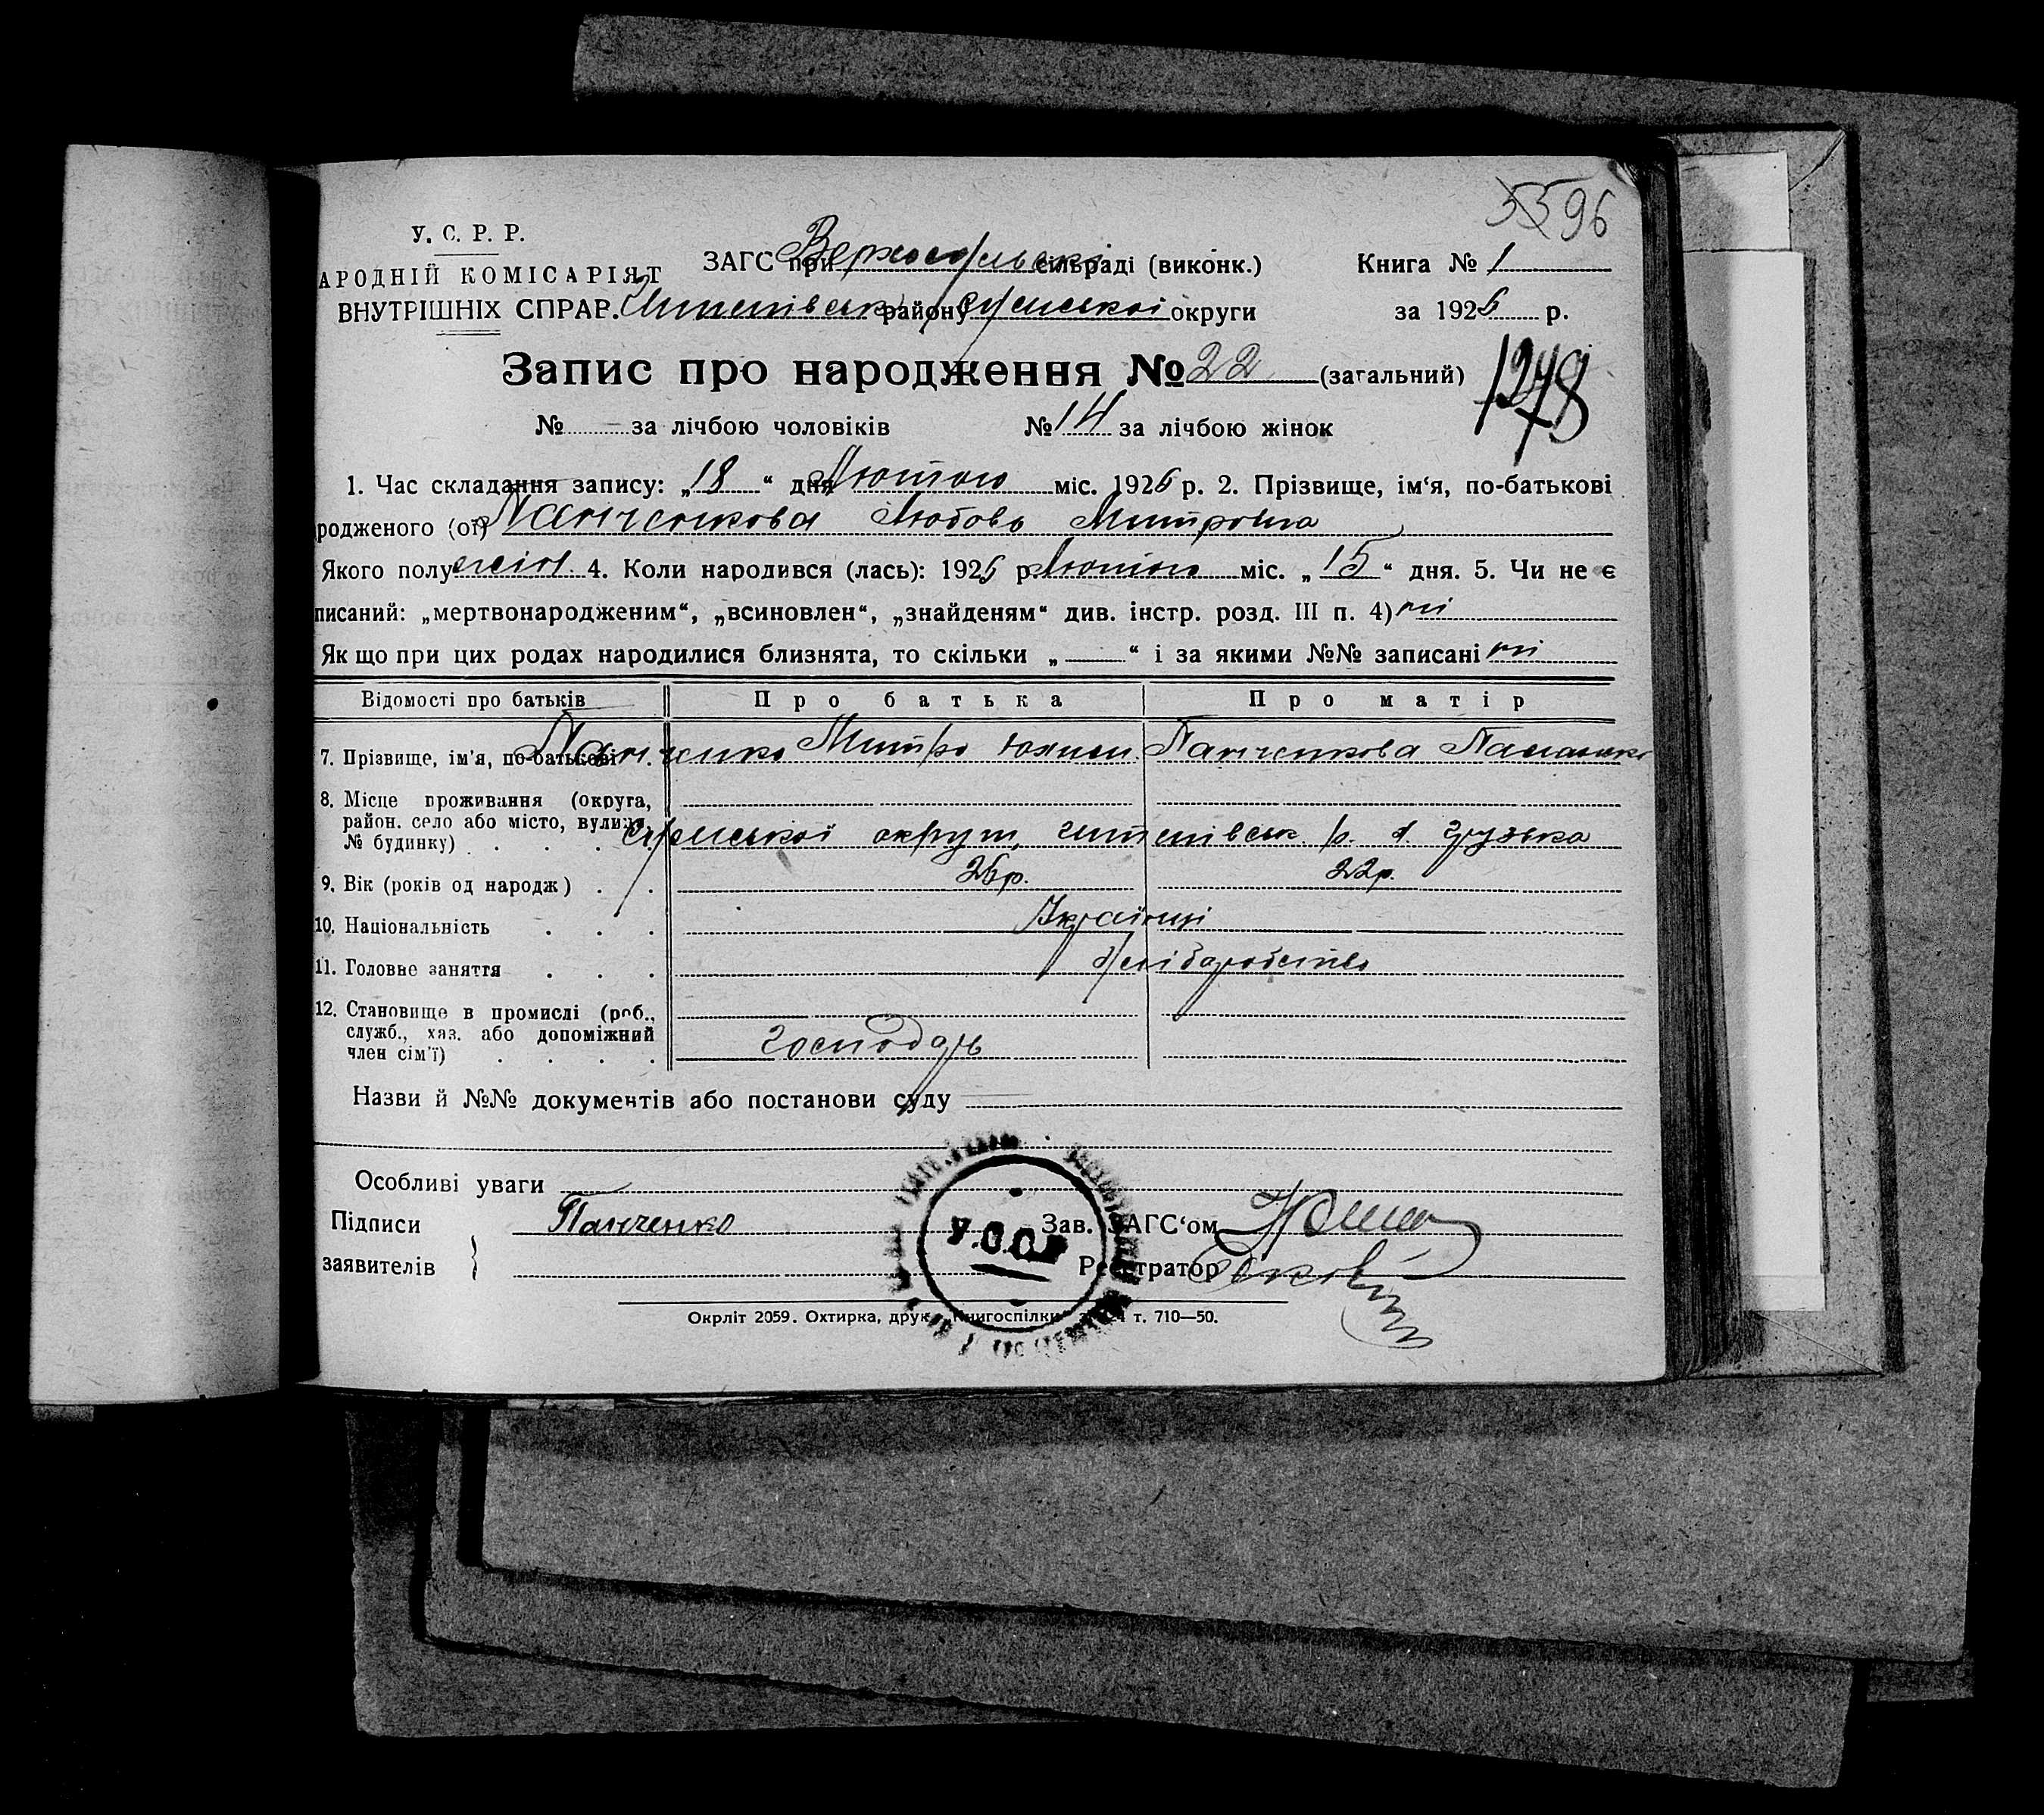 5596
У. С. Р. Р.
АРОДНІЙ КОМІСАРІЯТ
ВНУТРІШНІХ СПРАВ.
ЗАГС при сільраді (виконк.)
Книга № 1
району Сумської округи
за 1926 р.
Запис про народження № 22 (загальний)
1278
№ — за лічбою чоловіків № 14 за лічбою жінок
1. Час складання запису: „18“ дня Лютого міс. 1926 р. 2. Прізвище, ім‘я, по-батькові
родженого (ої) Панченкова Любовь Митровна
Якого полу жін. 4. Коли народився (лась): 1926 р. Лютого міс. „15“ дня. 5. Чи не є
писаний: „мертвонародженим“, „всиновлен“, „знайденям“ див. інстр. розд. III п. 4) ні
Як що при цих родах народилися близнята, то скільки „—“ і за якими №№ записані ні
Відомості про батьків Про батька Про матір
7. Прізвище, ім'я, по-батькові Панченко Митро Юхим. Панченкова
8. Місце проживання (округа,
район. село або місто, вулиця,
№ будинку) Сумської округи, р. Грузька
9. Вік (років од народж) 26р. 22р.
10. Національність Українці
11. Головне заняття
12. Становище в промислі (роб.,
служб., хаз. або допоміжний
член сім'ї) господарь
Назви й №№ документів або постанови суду
Особливі уваги
Підписи
заявителів
Панченко
Зав. ЗАГС‘ом
Реєстратор
У.С.С.Р
Окрліт 2059. Охтирка, друк. Книгоспілки т. 710—50.